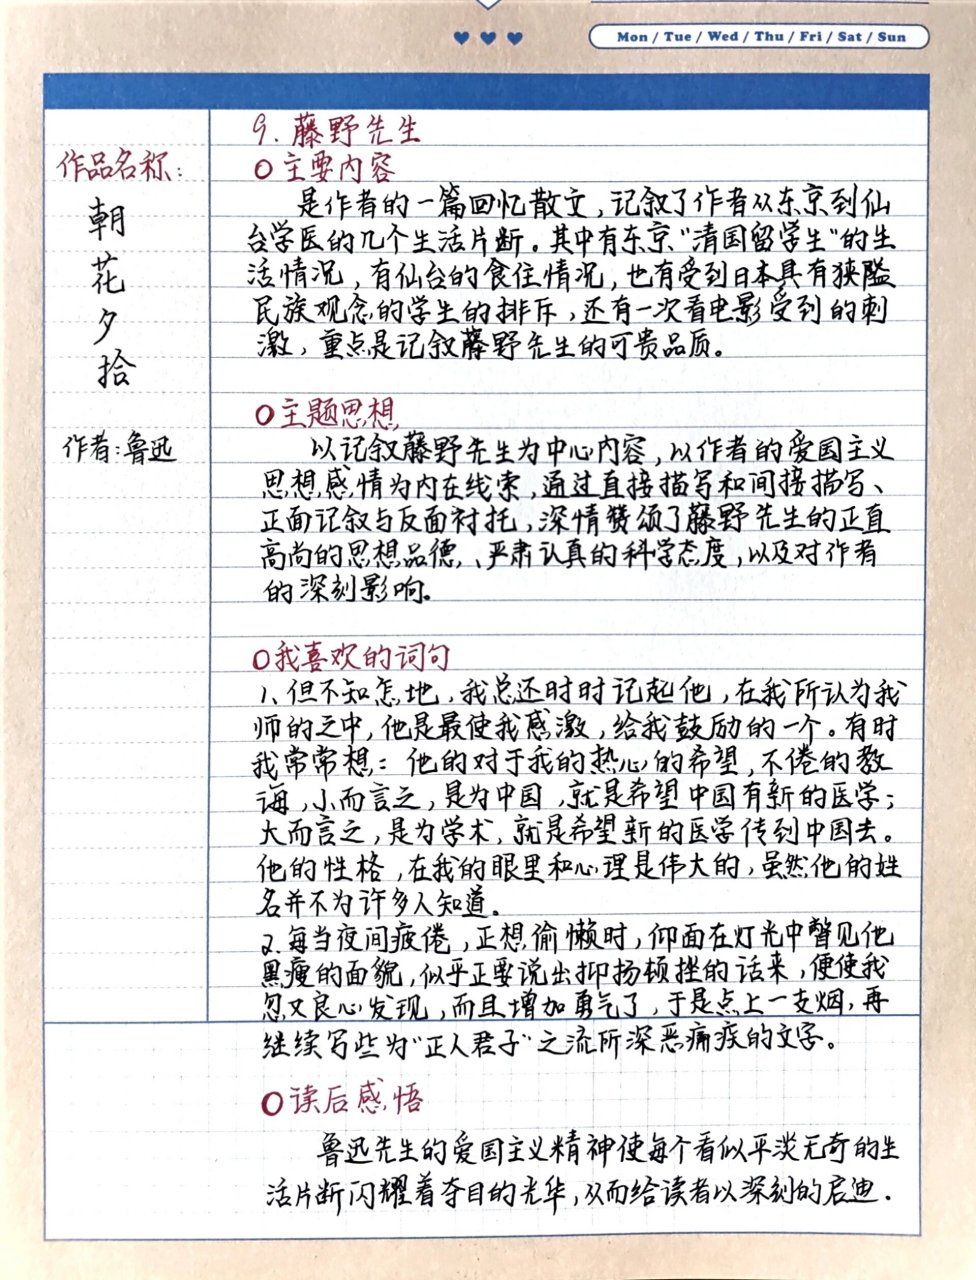 Mon / Tue / Wed / Thu / Fri / Sat / Sun
作品名称:
朝
花
夕
拾
作者:鲁迅
9. 藤野先生
○主要内容
是作者的一篇回忆散文,记叙了作者从东京到仙
台学医的几个生活片断。其中有东京"清国留学生"的生
活情况,有仙台的食住情况,也有受到日本具有狭隘
民族观念的学生的排斥,还有一次看电影受到的刺
激,重点是记叙藤野先生的可贵品质。
○主题思想
以记叙藤野先生为中心内容,以作者的爱国主义
思想感情为内在线索,通过直接描写和间接描写、
正面记叙与反面衬托,深情赞颂了藤野先生的正直
高尚的思想品德、严肃认真的科学态度,以及对作者
的深刻影响。
○我喜欢的词句
1、但不知怎地,我总还时时记起他,在我所认为我
师的之中,他是最使我感激,给我鼓励的一个。有时
我常常想:他的对于我的热心的希望,不倦的教
诲,小而言之,是为中国,就是希望中国有新的医学;
大而言之,是为学术,就是希望新的医学传到中国去。
他的性格,在我的眼里和心理是伟大的,虽然他的姓
名并不为许多人知道。
2、每当夜间疲倦,正想偷懒时,仰面在灯光中瞥见他
黑瘦的面貌,似乎正要说出抑扬顿挫的话来,便使我
忽又良心发现,而且增加勇气了,于是点上一支烟,再
继续写些为"正人君子"之流所深恶痛疾的文字。
○读后感悟
鲁迅先生的爱国主义精神使每个看似平淡无奇的生
活片断闪耀着夺目的光华,从而给读者以深刻的启迪.